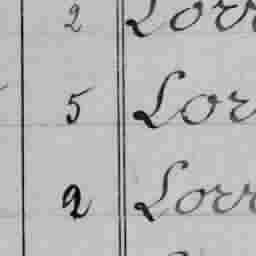 2 Lorr
5 Lor
2 Lorr